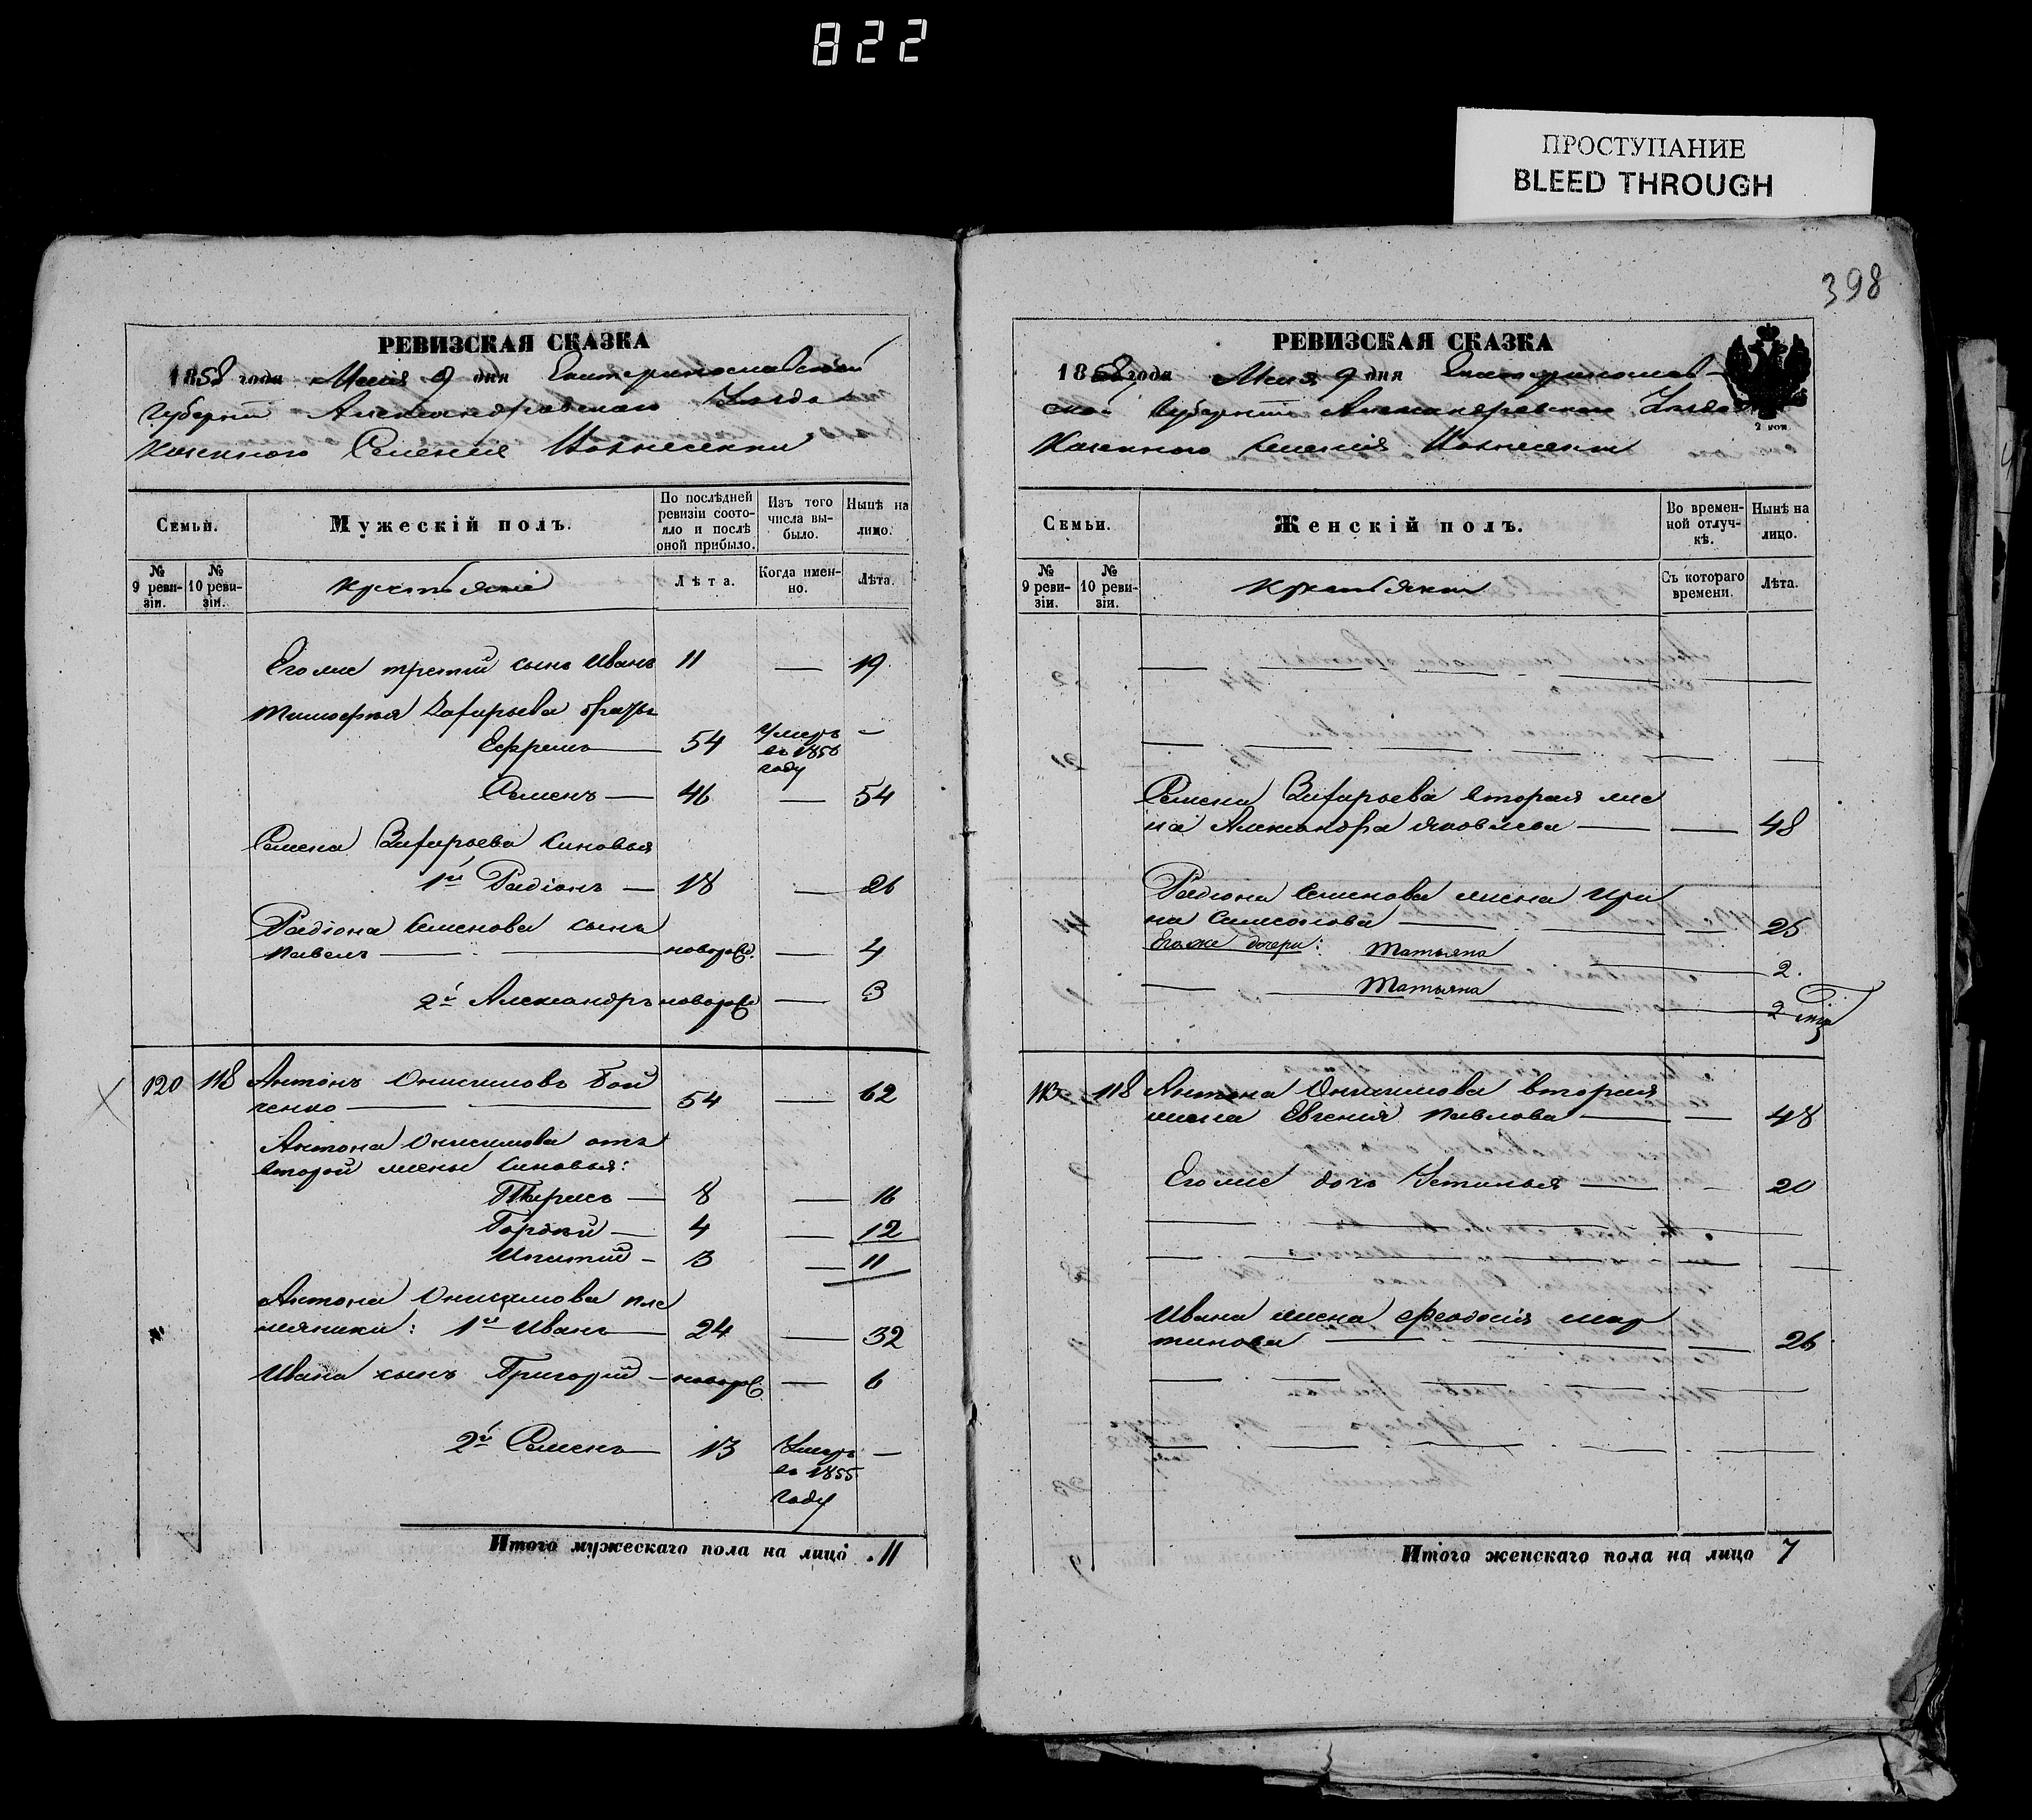 822
ПРОСТУПАНИЕ
BLEED THROUGH
398
РЕВИЗСКАЯ СКАЗКА
1858 года Маія 9 дня Екатеринославской
Губерніи Александровскаго Уѣзда
Казенного Селенія Вознесенки
Семьи.
Мужескій полъ.
По послѣдней ревизіи состо-
яло и послѣ
оной прибыло.
Изъ того
числа вы-
было.
Нынѣ на
лицо.
№
9 реви-
зіи.
№
10 реви-
зіи.
крестьяне
Лѣта.
Когда имен-
но.
Лѣта.
Его же третий сынъ Иванъ 11 — 19
Тимофея Захарьева братья
Ефремъ — 54 Умеръ въ 1856 году —
Семенъ — 46 — 54
Семена Захарьева сыновья
1й Радіонъ — 18 — 26
Радіона Семенова сынъ
Павелъ — новорож. — 4
2й Александръ новорож — 3
120 118 Антонъ Онисимовъ Бой
ченко — 54 — 62
Антона Онисимова отъ
второй жены сыновья:
Тарасъ — 8 — 16
Гордѣй — 4 — 12
Ипатий — 3 — 11
Антона Онисимова пле
мяники: 1й Иванъ — 24 — 32
Ивана сынъ Григорий — новорож — 6
2й Семенъ — 13 Умеръ въ 1855 году —
Итого мужескаго пола на лицо 11
РЕВИЗСКАЯ СКАЗКА
1858 года Маія 9 дня Екатеринослав-
ской Губерніи Александровского Уѣзда
2 коп.
Казенного Селенія Вознесенки
Семьи.
Женскій полъ.
Во времен-
ной отлуч-
кѣ.
Нынѣ на
лицо.
№
9 реви-
зіи.
№
10 реви-
зіи.
крестьянки
Съ котораго
времени.
Лѣта.
Семена Захарьева вторая же
на Александра Яковлева — — 48
Радіона Семенова жена Ири
на Самсонова — — 25
Его же дочери: Татьяна — 2.
Татьяна — 2
118 Антона Онисимова вторая
жена Евгения Павлова — — 48
Его же дочь Устинья — - 20
Ивана жена Феодосія Мар
тинова — — 26
Итого женскаго пола на лицо 7